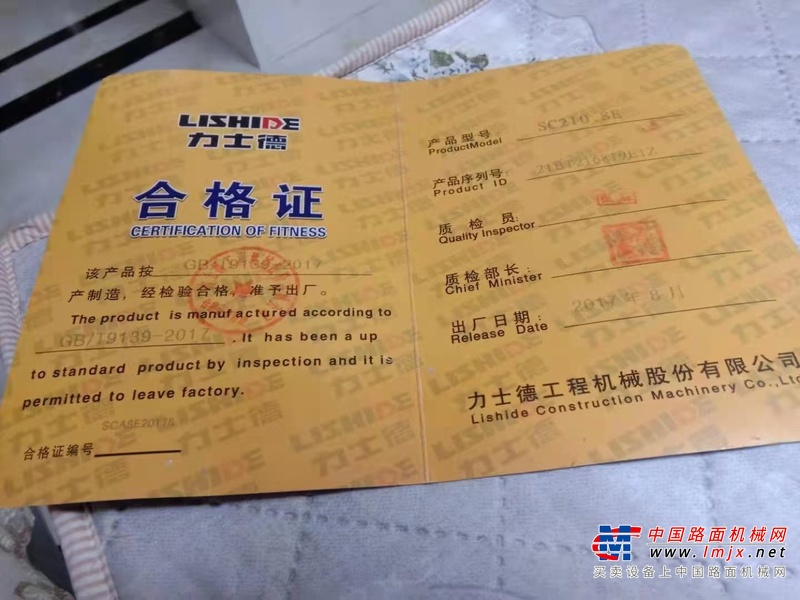 LISHIDE
力士德
合格证
CERTIFICATION OF FITNESS
该产品按 GB/T9139-2017
产制造，经检验合格，准予出厂。
The product is manufactured according to
GB/T9139-2017 . It has been a up
to standard product by inspection and it is
permitted to leave factory.
合格证编号
产品型号: SC210.8E
ProductModel
产品序列号:
Product ID
质检员:
Quality Inspector
质检部长:
Chief Minister
出厂日期: 2017年8月
Release Date
力士德工程机械股份有限公司
Lishide Construction Machinery Co.,Ltd
中国路面机械网
www.lmjx.net
买卖设备上中国路面机械网